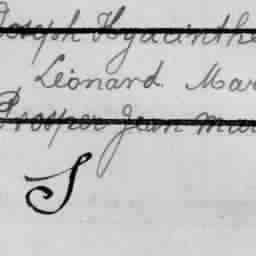 Joseph Hyacinthe
, Léonard Mar
Prosper Jean Mar
S